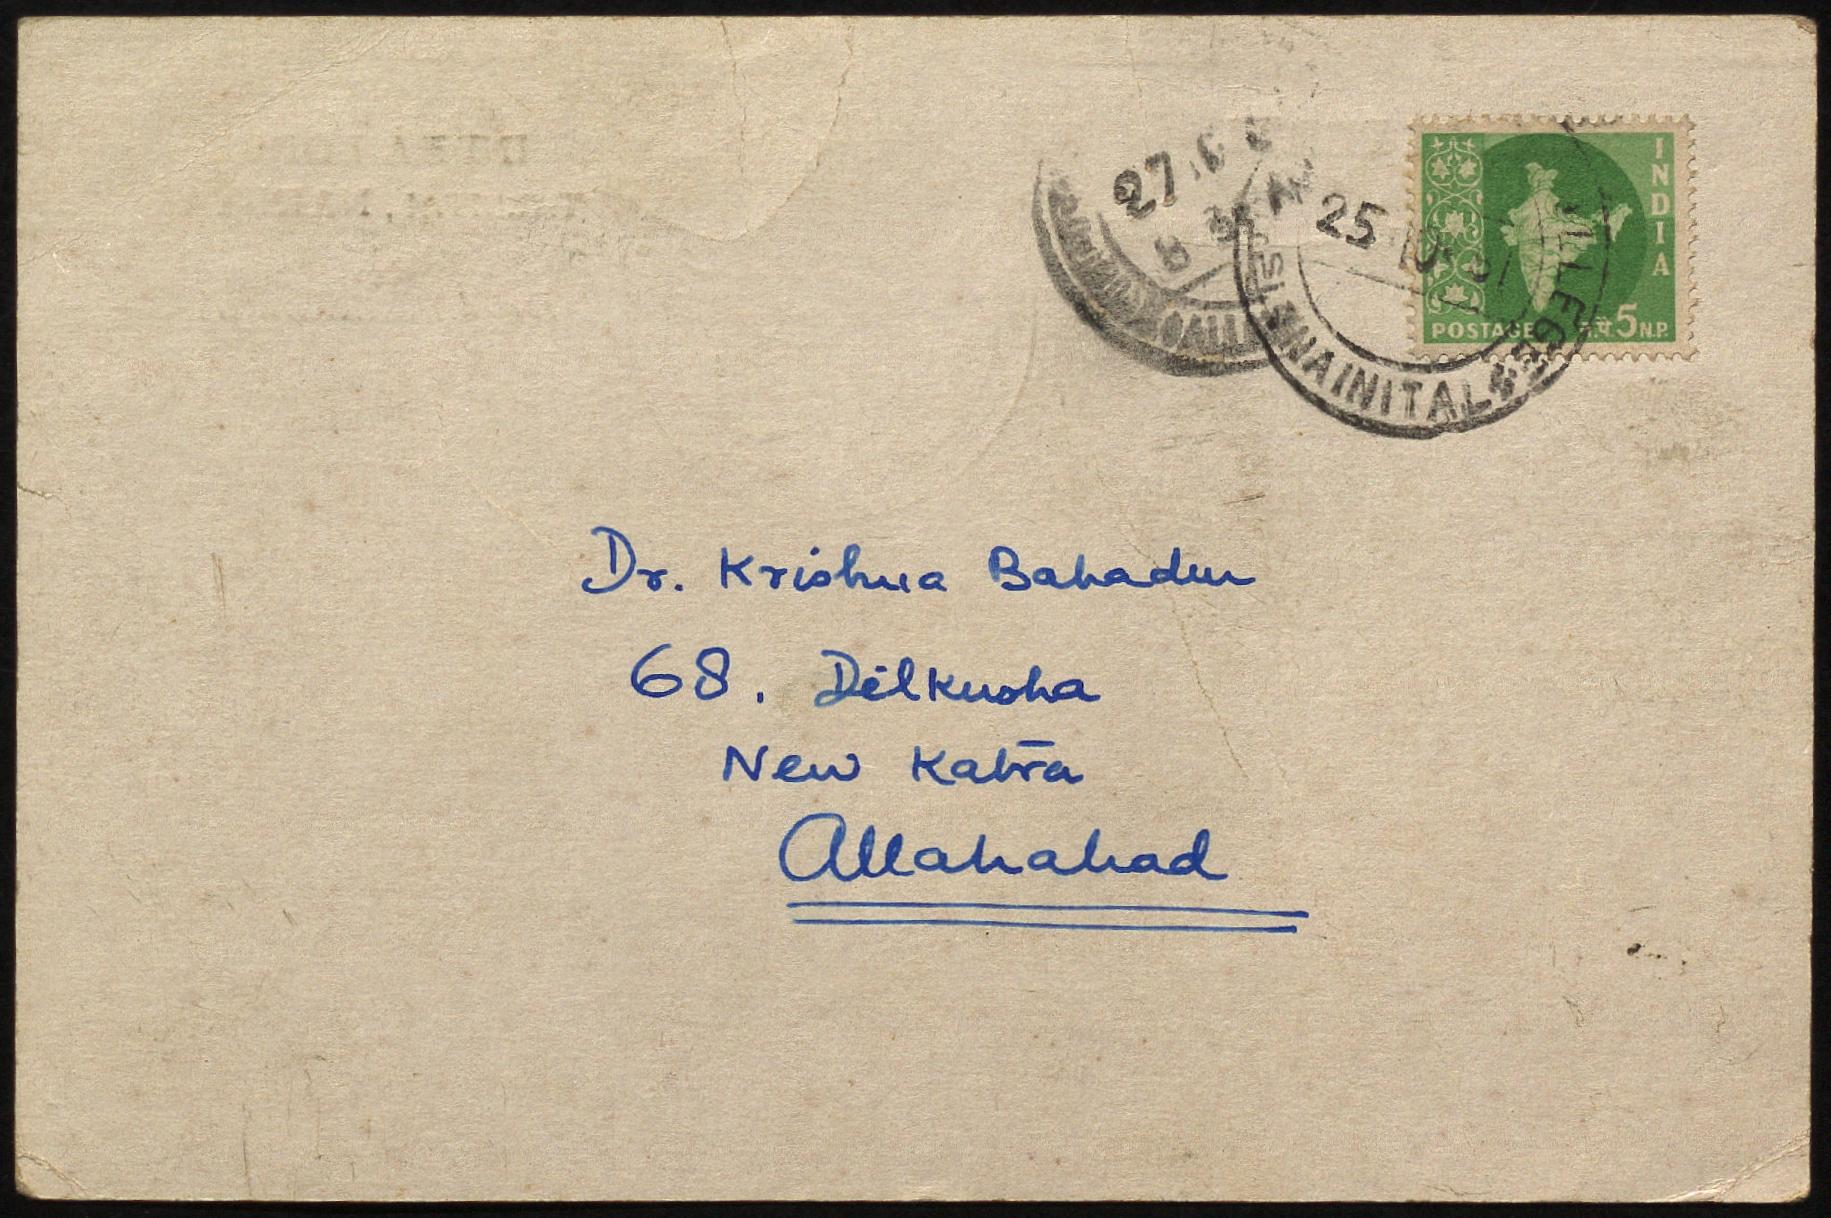 27
25
NAINITAL
INDIA
POSTAGE न.पै. 5 N.P.
Dr. Krishna Bahadur
68. Dilkusha
New Katra
Allahabad